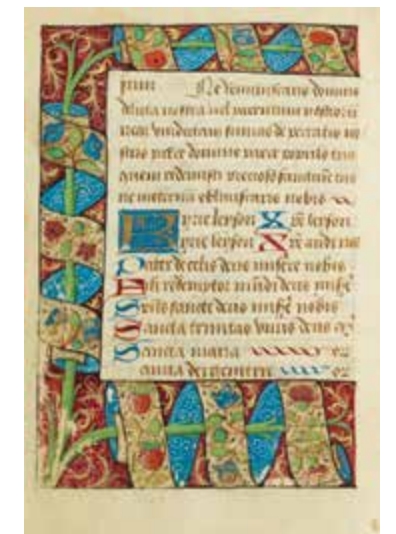 Ne reminiscaris domine
delicta nostra vel parentum nostroru
neqz vindictam sumas de peccatis no
stris parce domine parce populo tuo
quem redemisti precioso sanguine tuo
ne in eternu obliviscaris nobis
Kyrie leyson Xpe leyson
Kyrie leyson Xpe audi nos
Pater de celis deus misere nobis
Fili redemptor mudi deus mise
Spus sancte deus mise nobis
Sancta trinitas unus deus
Sancta maria or
Sancta dei genitrix or